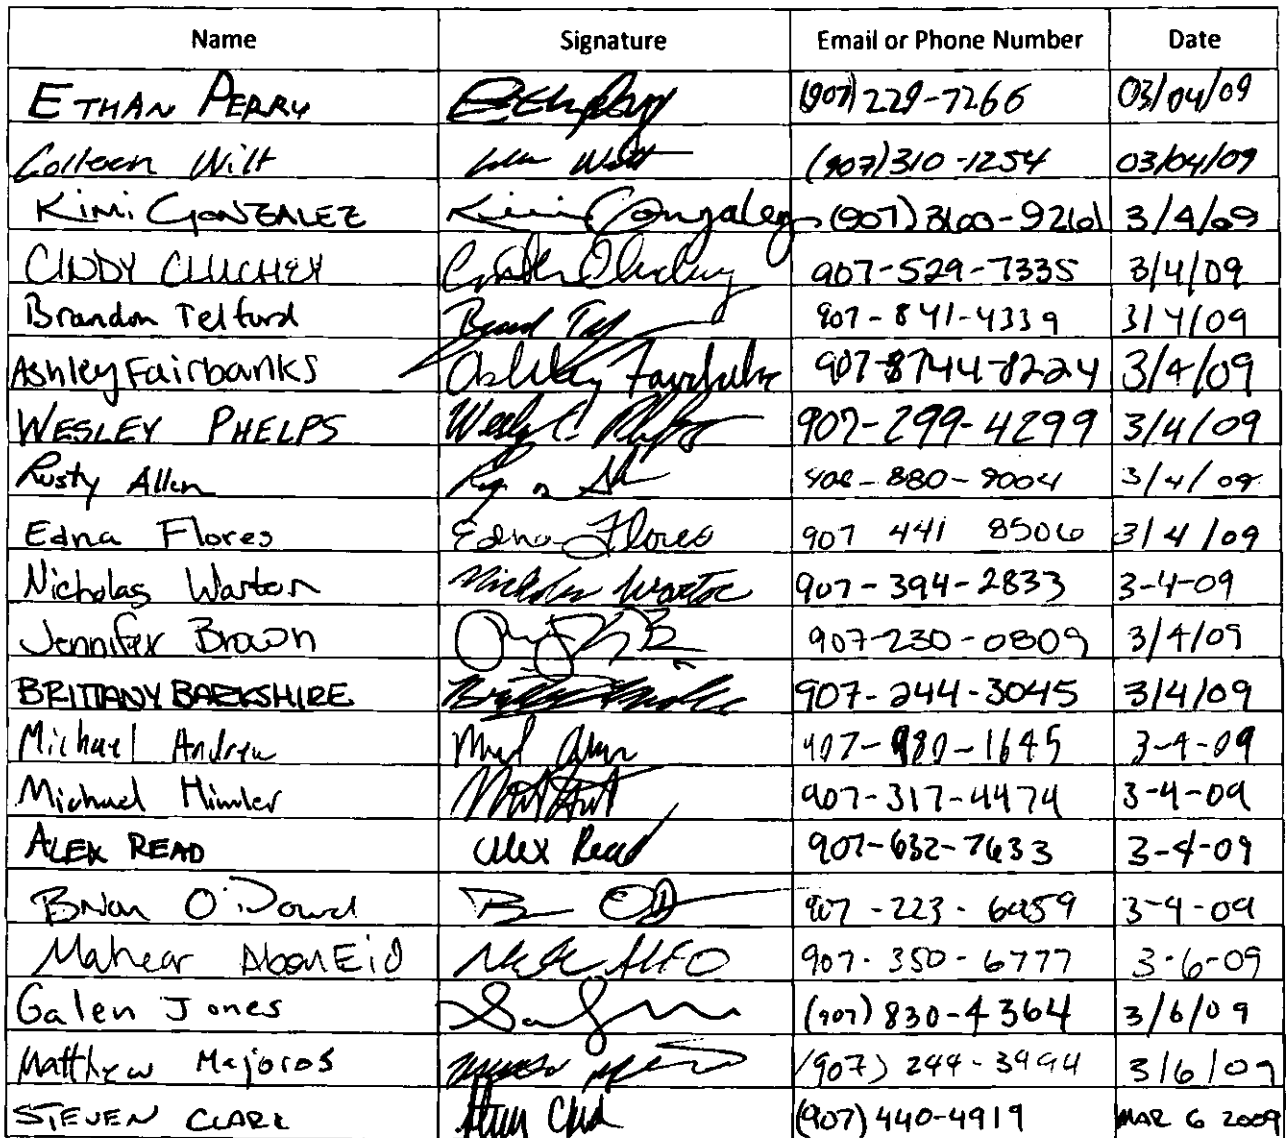 Name Signature Email or Phone Number Date
ETHAN PERRY (907) 229-7266 03/04/09
Colleen Wilt (907) 310-1254 03/04/09
Kimi GONZALEZ Kimi Gonzalez (907) 360-9261 3/4/09
CINDY CLUCHEY 907-529-7335 3/4/09
Brandon Telford 907-841-4339 3/4/09
Ashley Fairbanks Ashley Fairbanks 3/4/09
WESLEY PHELPS Wesley C. Phelps 907-299-4299 3/4/09
Rusty Allen 3/4/09
Edna Flores Edna Flores 907 441 8506 3/4/09
Nicholas Warton Nicholas Warton 907-394-2833 3-4-09
Jennifer Brown 907-230-0809 3/4/09
BRITTANY BARKSHIRE 907-244-3045 3/4/09
Michael Andrew 3-4-09
Michael Himler 907-317-4474 3-4-09
ALEX READ Alex Read 907-632-7633 3-4-09
Brian O'Dowd 907-223-6959 3-4-09
Mahear AbouEid 907-350-6777 3-6-09
Galen Jones (907) 830-4364 3/6/09
Matthew Majoros (907) 244-3994 3/6/09
STEVEN CLARK (907) 440-4919 MAR 6 2009